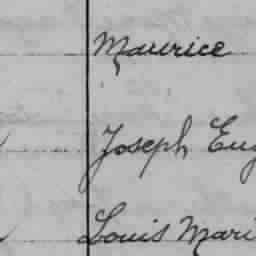 Maurice
Joseph Eug
Louis Mari